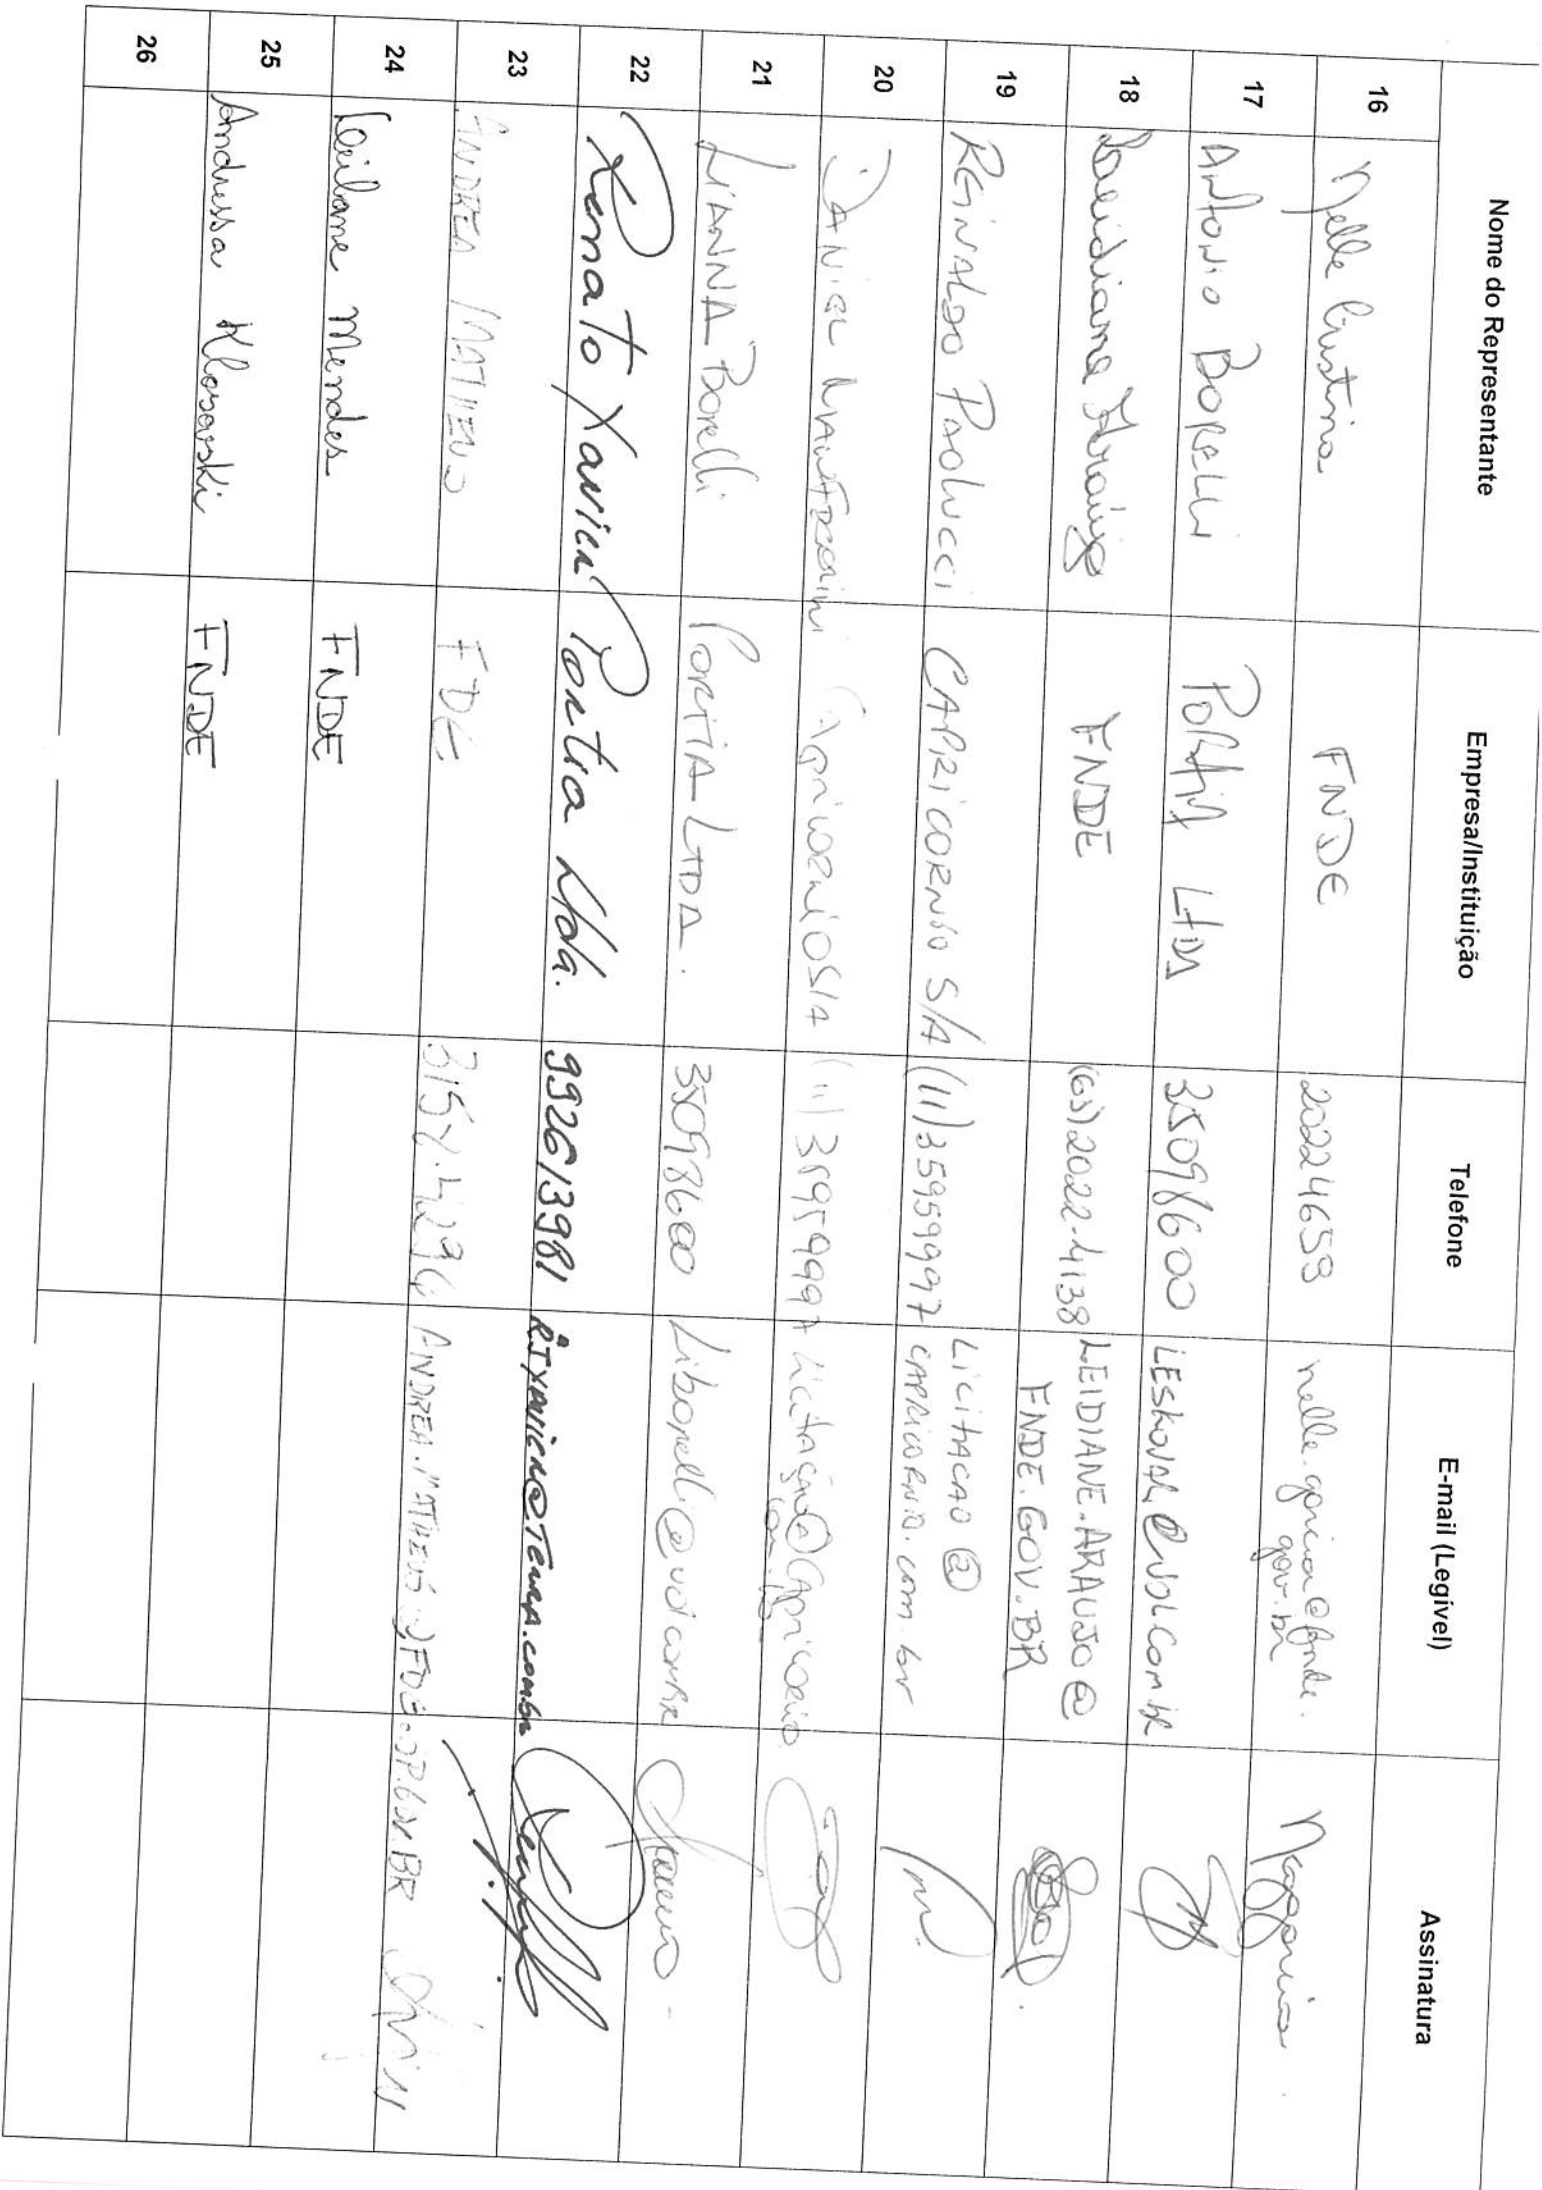 Nome do Representante Empresa/Instituição Telefone E-mail (Legível) Assinatura
16 Nelle Cristina FNDE 20224659 nelle.garcia@fnde.
gov.br
17 Antonio BORELLI PORTIA LTDA 35098600 LESKOVAR@UOL.COM.BR
18 Leidiane Araujo FNDE (61)2022-4138 LEIDIANE.ARAUJO@
FNDE.GOV.BR
19 REINALDO PAOLUCCI CAPRICORNIO S/A (11)35959997 LICITACAO@
CAPRICORNIO.com.br
20 DANIEL Capricornio S/A (11) 35959997 Licitação@Capricornio.
com.br
21 LIANNA Borelli PORTIA LTDA. 35098600 Liborelli@uol.com.BR
22 Renato Xavier Portia Ltda. 992613981 RJXAVIER@TERRA.com.br
23 ANDREA MATHEUS FDE ANDREA.MATHEUS@FDE.SP.GOV.BR
24 Leilane Mendes FNDE
25 Andressa Klosovski FNDE
26